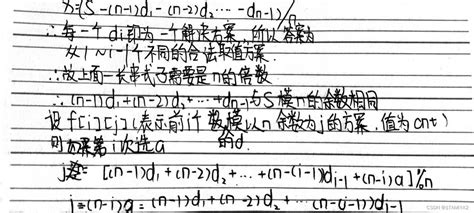 x=(S-(n-1)d₁-(n-2)d₂-…-dn-1)/
∴每一个di即为一个解决方案,所以答案为
从1~i-1个不同的合法取值方案.
∴故上面一长串式子需要是n的倍数
∴(n-1)d₁+(n-2)d₂+…+dn-1与S模n的余数相同
设f[i][j](表示前i个数,模以n余数为j的方案,值为cnt)
第i次选a 的d.
j= [(n-1)d₁+(n-2)d₂+…+(n-(i-1))di-1+(n-i)a]%n
j-(n-i)a=(n-1)d₁+(n-2)d₂…(n-(i-1))di-1
CSDN